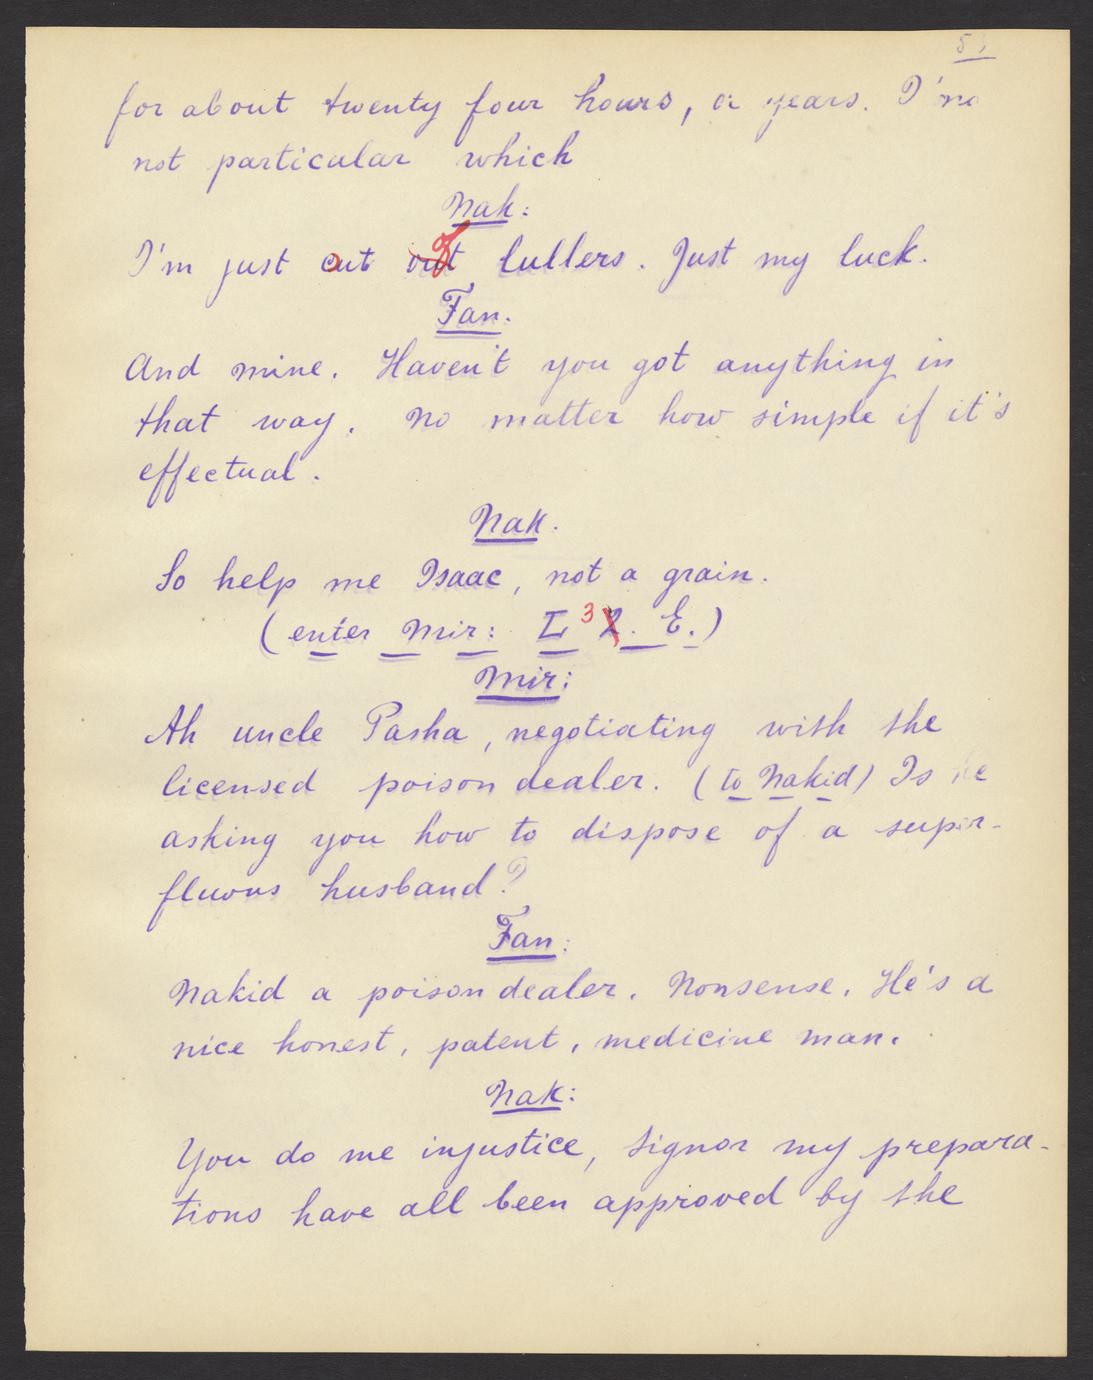 5)
for about twenty four hours, or years. I'm
not particular which
Nak:
I'm just out of lullers. Just my luck.
Fan.
And mine. Haven't you got anything in
that way. No matter how simple if it's
effectual.
Nak.
So help me Isaac, not a grain.
(enter Mir: L 3 E.)
Mir:
Ah uncle Pasha, negotiating with the
licensed poison dealer. (to Nakid) Is he
asking you how to dispose of a super-
fluous husband?
Fan:
Nakid a poison dealer. Nonsense. He's a
nice honest, patent, medicine man.
Nak:
You do me injustice, Signor my prepara-
tions have all been approved by the